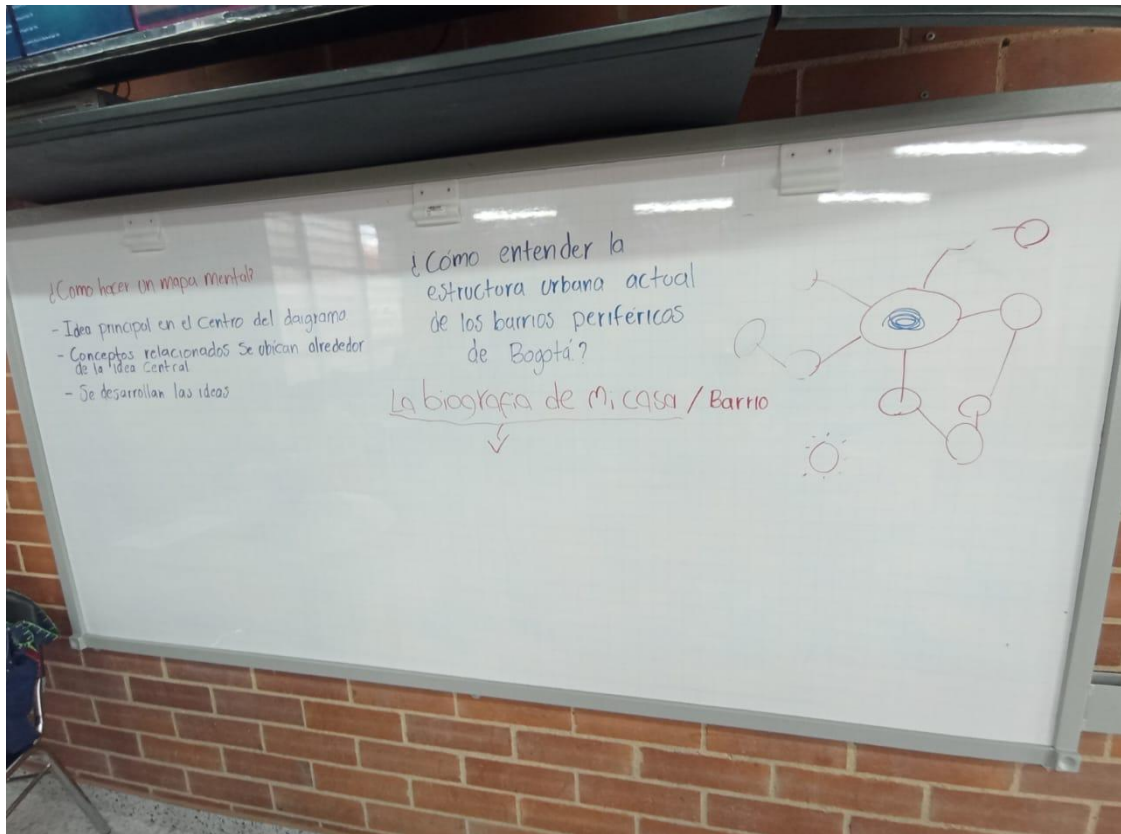 ¿Como hacer un mapa mental?
- Idea principal en el Centro del daigrama
- Conceptos relacionados Se ubican alrededor
de la idea Central
- Se desarrollan las ideas
¿Cómo entender la
estructura urbana actual
de los barrios periféricos
de Bogotá?
La biografia de Mi casa / Barrio